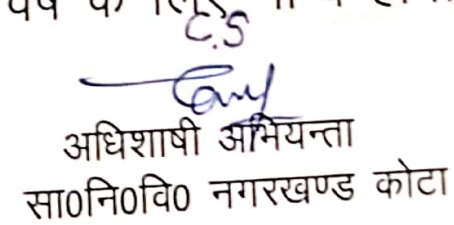 C.S
अधिशाषी अभियन्ता
सा०नि०वि० नगरखण्ड कोटा